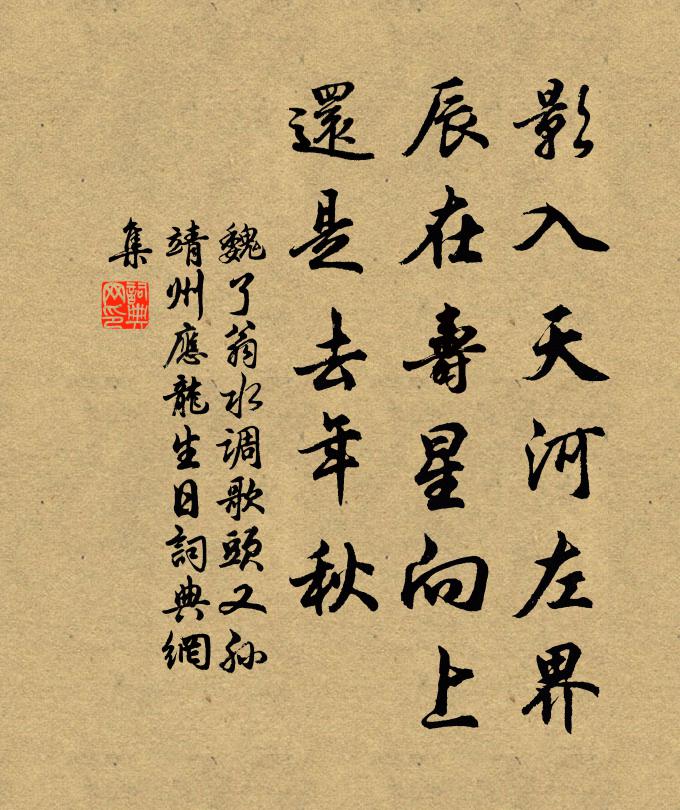 影入天河左界
辰在壽星向上
還是去年秋
魏了翁水调歌頭又孙
靖州應龍生日詞典網
集
詞典
网印